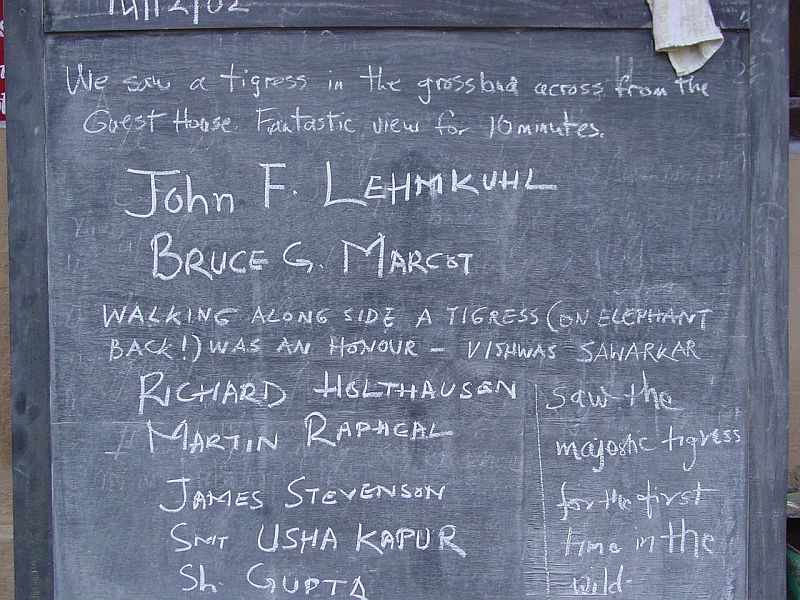 We saw a tigress in the grossbad across from the
Guest House. Fantastic view for 10 minutes.
John F. LEHMKUHL
BRUCE G. MARCOT
WALKING ALONG SIDE A TIGRESS (ON ELEPHANT
BACK!) WAS AN HONOUR – VISHWAS SAWARKAR
RICHARD HOLTHAUSEN
MARTIN RAPHAEL
JAMES STEVENSON
SMT USHA KAPUR
Sh. GUPTA
saw the
majestic tigress
for the first
time in the
wild.